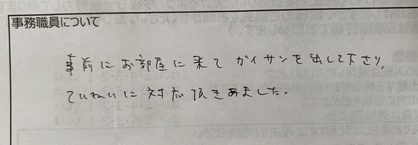 事務職員について
事前にお部屋に来て ガイサンを出して下さり、
ていねいに対応頂きました。